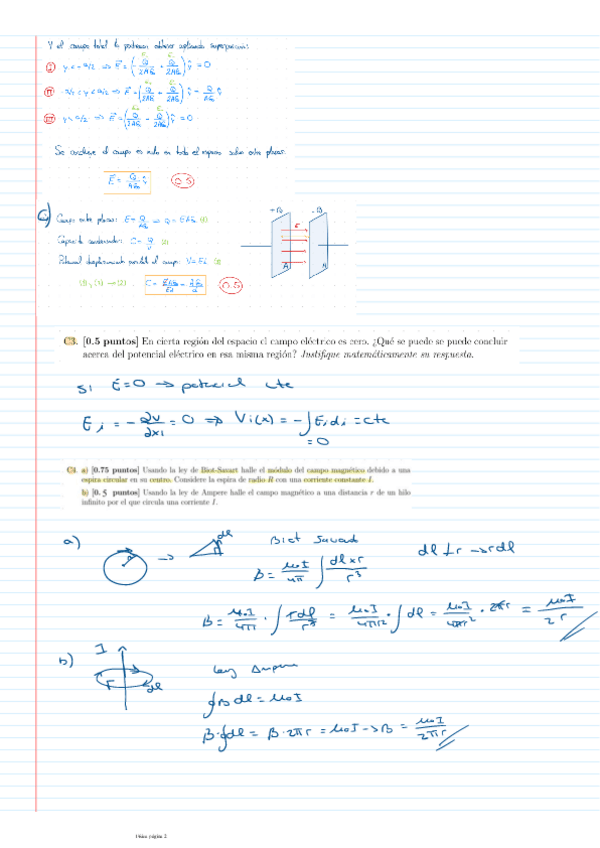 Y el campo total lo podremos obtener aplicando superposición:
I y < -a/2 => E⃗ = (-Q/2Aε₀ + Q/2Aε₀) ĵ = 0
II -a/2 < y < a/2 => E⃗ = (Q/2Aε₀ + Q/2Aε₀) ĵ = Q/Aε₀ ĵ
III y > a/2 => E⃗ = (Q/2Aε₀ - Q/2Aε₀) ĵ = 0
Se concluye el campo es nulo en todo el espacio salvo entre placas:
E⃗ = Q/Aε₀ ĵ 0.5
c) Campo entre placas: E = Q/Aε₀ => Q = EAε₀ (1)
Capacidad condensador: C = Q/V (2)
E
A A
0.5
C3. [0.5 puntos] En cierta región del espacio el campo eléctrico es cero. ¿Qué se puede se puede concluir
acerca del potencial eléctrico en esa misma región? Justifique matemáticamente su respuesta.
Si E⃗ = 0 → potencial cte
E i = - ∂V/∂xi = 0 => Vi(x) = - ∫ Ei di = cte
= 0
C4. a) [0.75 puntos] Usando la ley de Biot-Savart halle el módulo del campo magnético debido a una
espira circular en su centro. Considere la espira de radio R con una corriente constante I.
b) [0.5 puntos] Usando la ley de Ampere halle el campo magnético a una distancia r de un hilo
infinito por el que circula una corriente I.
a) → dl Biot Savart dl ⊥ r → r dl
B = μ₀I/4π ∫ dl x r/r³
B = μ₀I/4π · ∫ r dl/r³ = μ₀I/4πr² · ∫ dl = μ₀I/4πr² · 2πr = μ₀I/2r
b) I r dl Ley Ampere
∮ B dl = μ₀I
B · ∮ dl = B · 2πr = μ₀I → B = μ₀I/2πr